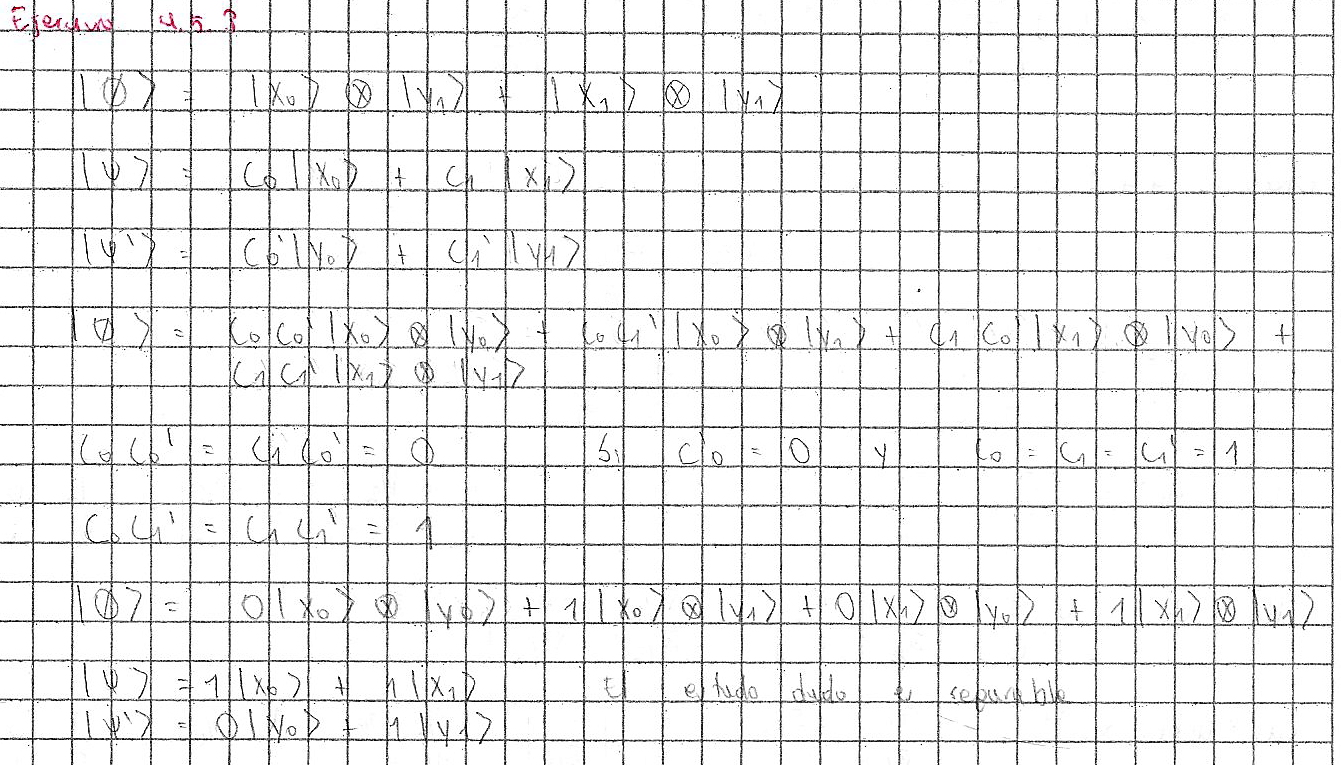 Ejercicio 4.5.3
|∅⟩ = |x₀⟩ ⊗ |y₁⟩ + |x₁⟩ ⊗ |y₁⟩
|ψ⟩ = c₀|x₀⟩ + c₁|x₁⟩
|ψ'⟩ = c₀'|y₀⟩ + c₁'|y₁⟩
|∅⟩ = c₀c₀'|x₀⟩ ⊗ |y₀⟩ + c₀c₁'|x₀⟩ ⊗ |y₁⟩ + c₁c₀'|x₁⟩ ⊗ |y₀⟩ +
c₁c₁'|x₁⟩ ⊗ |y₁⟩
c₀c₀' = c₁c₀' = 0 Si c'₀ = 0 y c₀ = c₁ = c₁' = 1
c₀c₁' = c₁c₁' = 1
|∅⟩ = 0|x₀⟩ ⊗ |y₀⟩ + 1|x₀⟩ ⊗ |y₁⟩ + 0|x₁⟩ ⊗ |y₀⟩ + 1|x₁⟩ ⊗ |y₁⟩
|ψ⟩ = 1|x₀⟩ + 1|x₁⟩ El estado dado es separable
|ψ'⟩ = 0|y₀⟩ + 1|y₁⟩